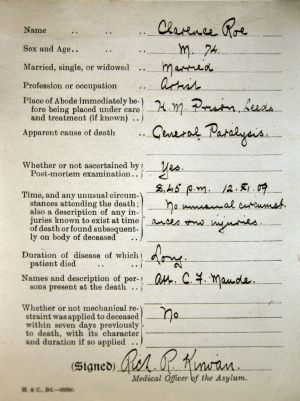 Name .. .. .. .. Clarence Roe
Sex and Age .. .. .. M. 74
Married, single, or widowed .. Married
Profession or occupation .. Artist
Place of Abode immediately be-
fore being placed under care
and treatment (if known) .. H. M. Prison, Leeds
Apparent cause of death .. General Paralysis.
Whether or not ascertained by
Post-mortem examination .. Yes.
Time, and any unusual circum-
stances attending the death;
also a description of any in-
juries known to exist at time
of death or found subsequent-
ly on body of deceased ..
8.45 p.m.
No unusual circumst
ances or injuries.
Duration of disease of which
patient died .. .. Long.
Names and description of per-
sons present at the death .. Att. C. F. Maude.
Whether or not mechanical re-
straint was applied to deceased
within seven days previously
to death, with its character
and duration if so applied .. No
(Signed) R. Kirwan.
Medical Officer of the Asylum.
H. & C., Ltd.